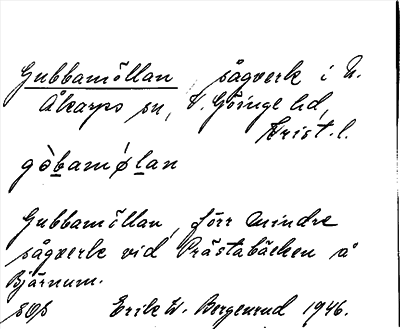 Gubbamöllan, sågverk i N.
Åkarps sn, V. Göinge hd,
Krist. l.
gòbamólan
Gubbamöllan, förr mindre
sågverk vid Prästabäcken å
Bjärnum.
Erik W. Bergenrud 1946.